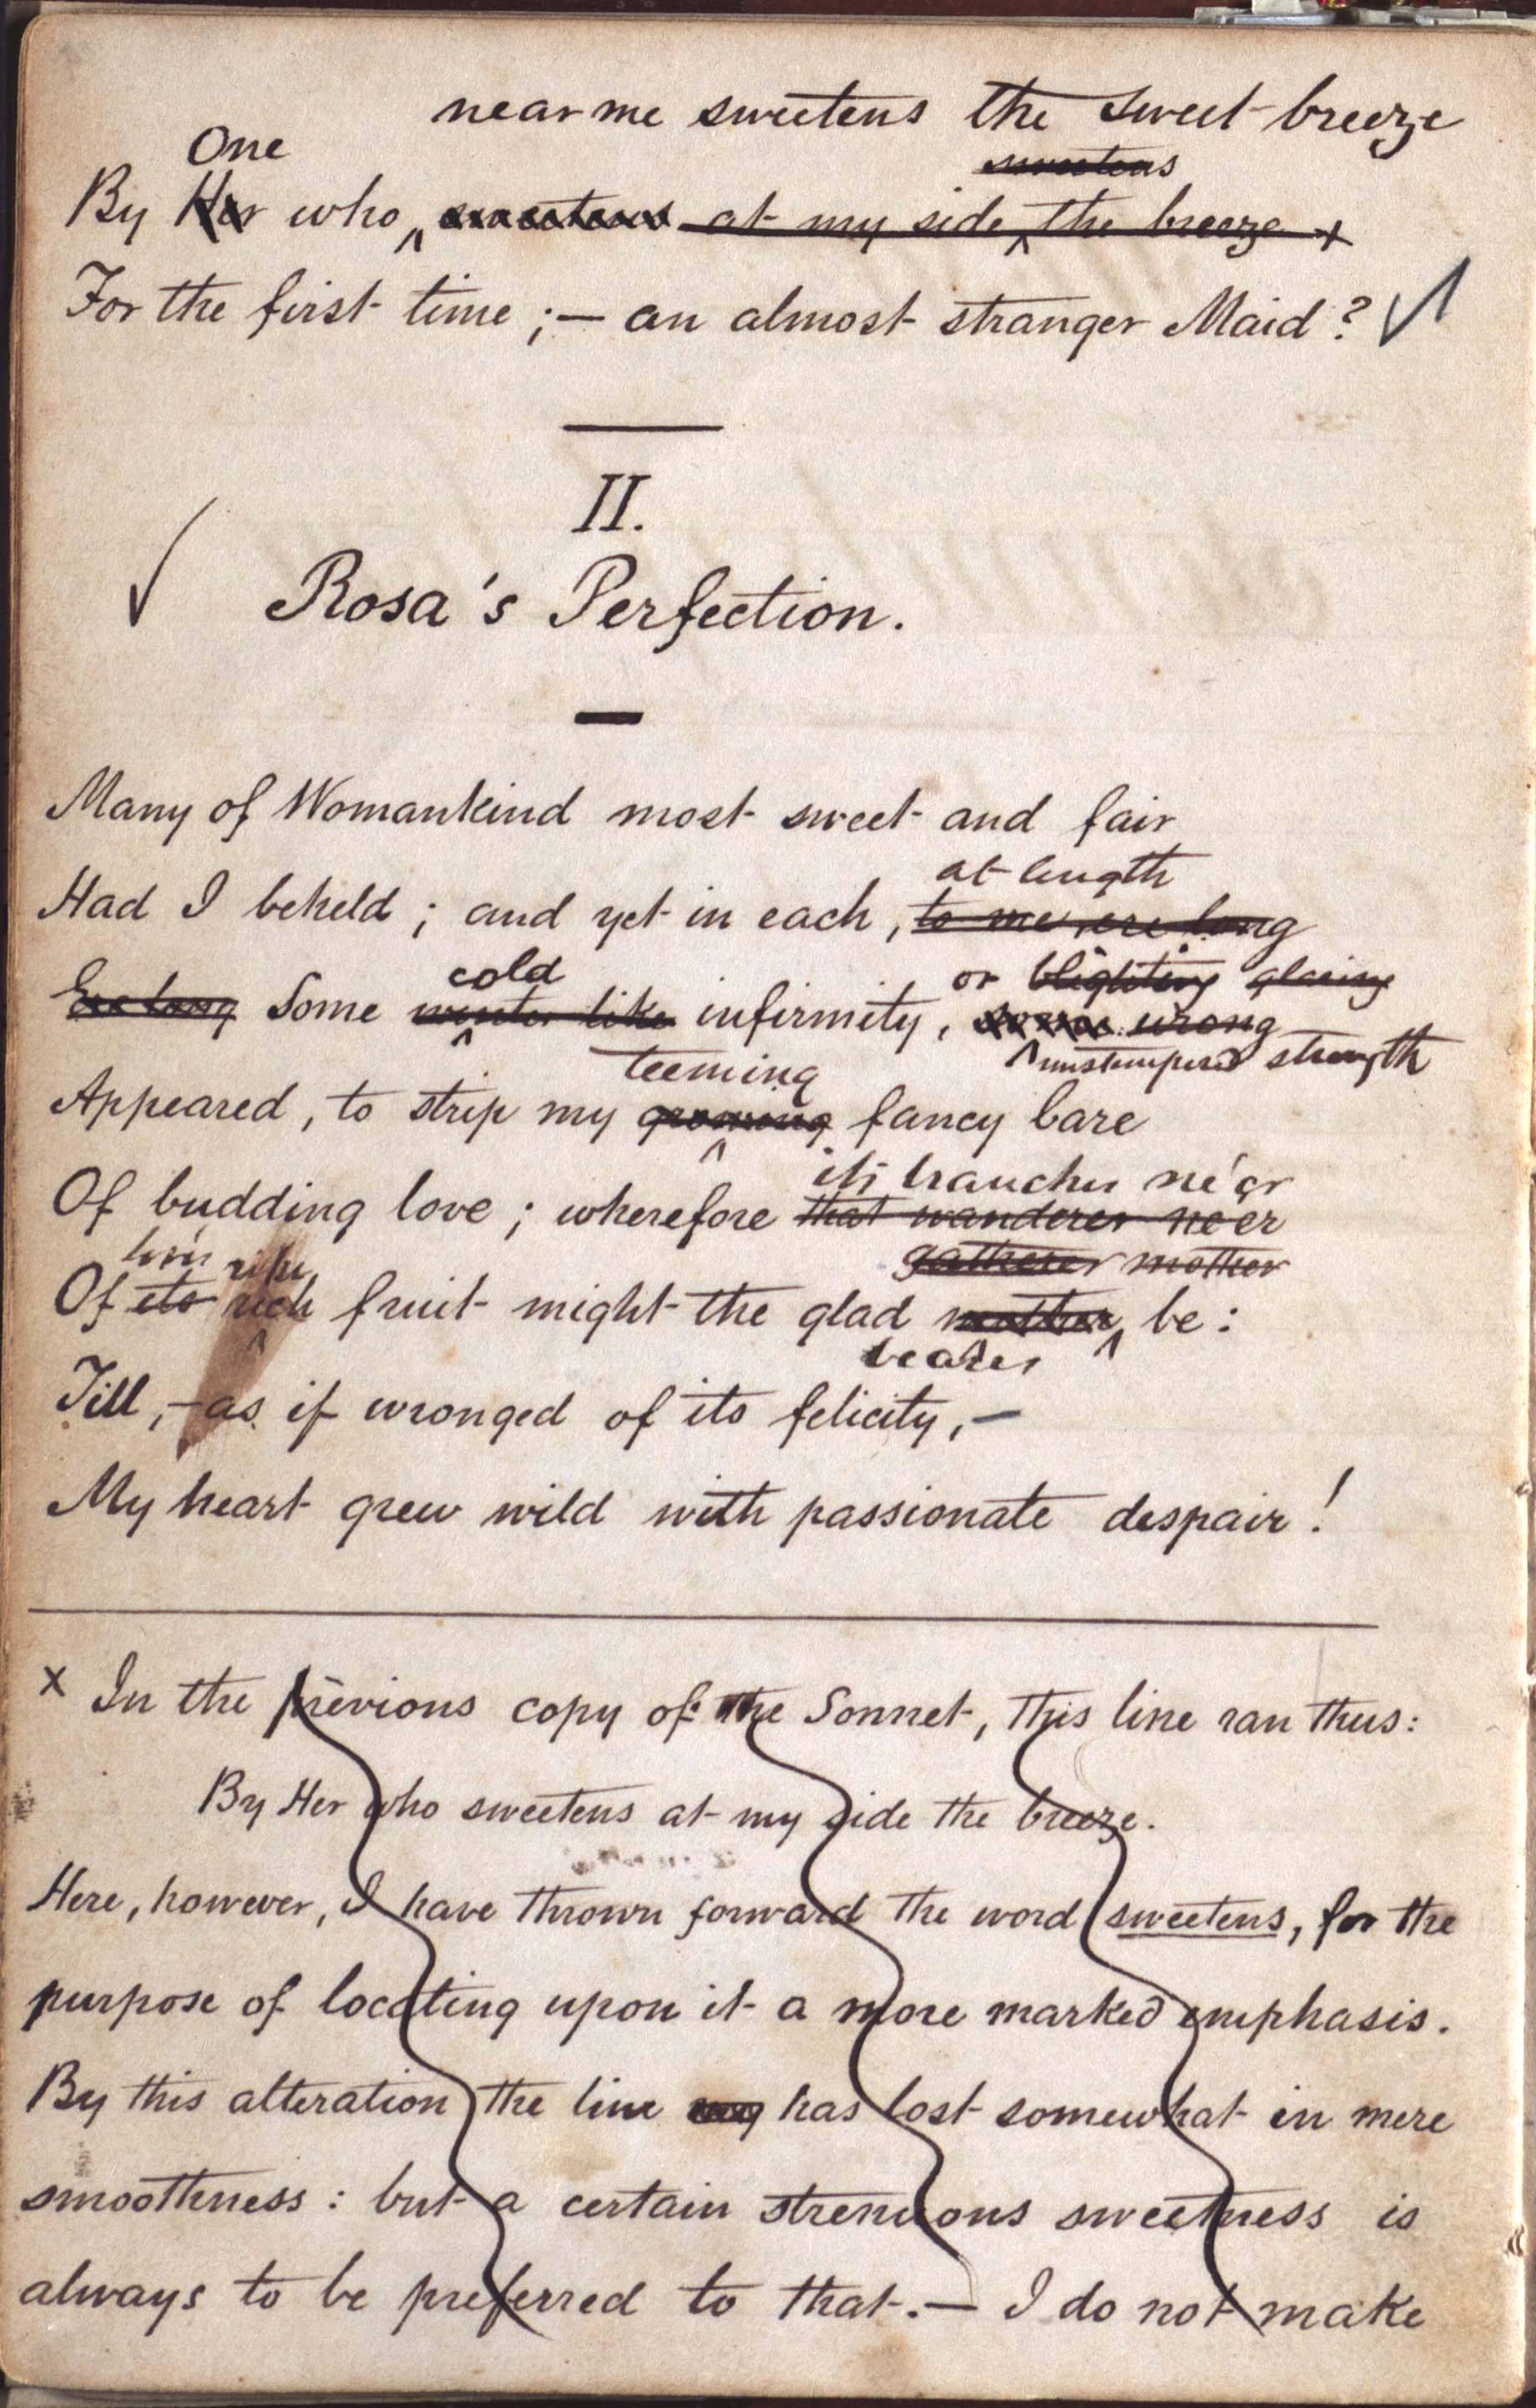 near me sweetens the sweet breeze
One
sweetens
By Her who sweetens at my side the breeze +
For the first time ;— an almost stranger Maid?
II.
Rosa's Perfection.
Many of Womankind most sweet and fair
at length
Had I beheld ; and yet in each, to me, ere long
cold or blighting glaring
Ere long Some winter like infirmity, some wrong
strength
teeming
Appeared, to strip my growing fancy bare
its branches ne'er
Of budding love ; wherefore that wanderer ne'er
ripe gatherer mother
Of its rich fruit might the glad mother be :
bearer
Till,—as if wronged of its felicity,—
My heart grew wild with passionate despair!
x In the previous copy of the Sonnet, this line ran thus:
By Her who sweetens at my side the breeze.
Here, however, I have thrown forward the word sweetens, for the
purpose of locating upon it a more marked emphasis.
By this alteration the line has lost somewhat in mere
smoothness : but a certain strenuous sweetness is
always to be preferred to that.— I do not make